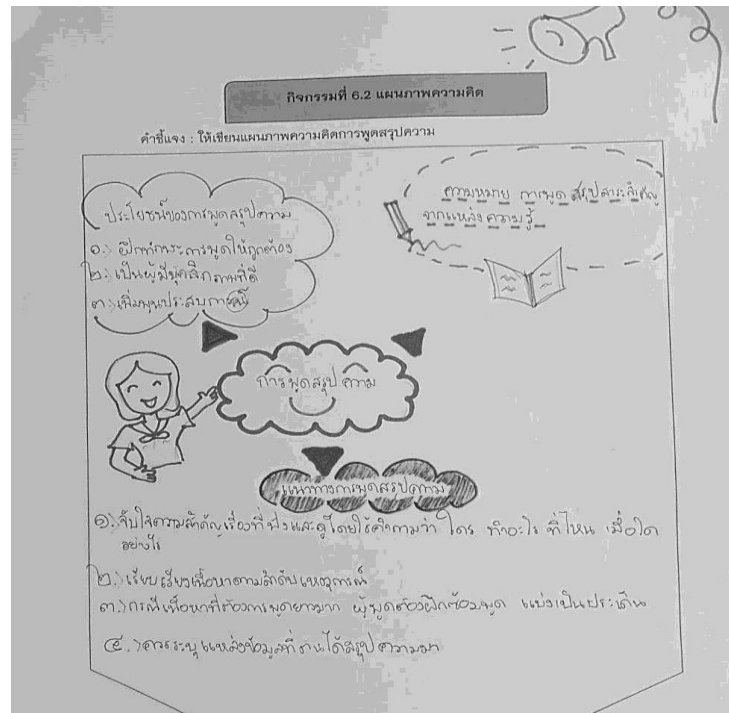 กิจกรรมที่ 6.2 แผนภาพความคิด
คำชี้แจง : ให้เขียนแผนภาพความคิดการพูดสรุปความ
ประโยชน์ของการพูดสรุปความ
๑.) ฝึกทักษะการพูดให้ถูกต้อง
๒.) เป็นผู้มีบุคลิกภาพที่ดี
๓.) เพิ่มพูนประสบการณ์
ความหมาย การพูด สรุปสาระสำคัญ
จากแหล่งความรู้
การพูดสรุปความ
แนวทางการพูดสรุปความ
๑.) จับใจความสำคัญเรื่องที่ฟังและดูโดยใช้คำถามว่า ใคร ทำอะไร ที่ไหน เมื่อใด
อย่างไร
๒.) เรียบเรียงเนื้อหาตามลำดับเหตุการณ์
๓.) กรณีเนื้อหาที่ต้องการพูดยาวมาก ผู้พูดต้องฝึกซ้อมพูด แบ่งเป็นประเด็น
๔.) ควรระบุแหล่งข้อมูลที่ ได้สรุปความมา